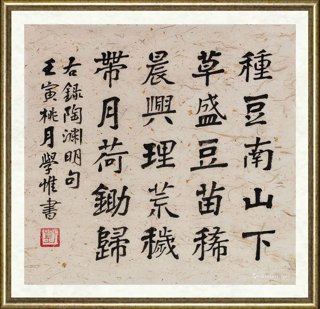 種豆南山下
草盛豆苗稀
晨興理荒穢
帶月荷鋤歸
右錄陶淵明句
壬寅桃月學惟書